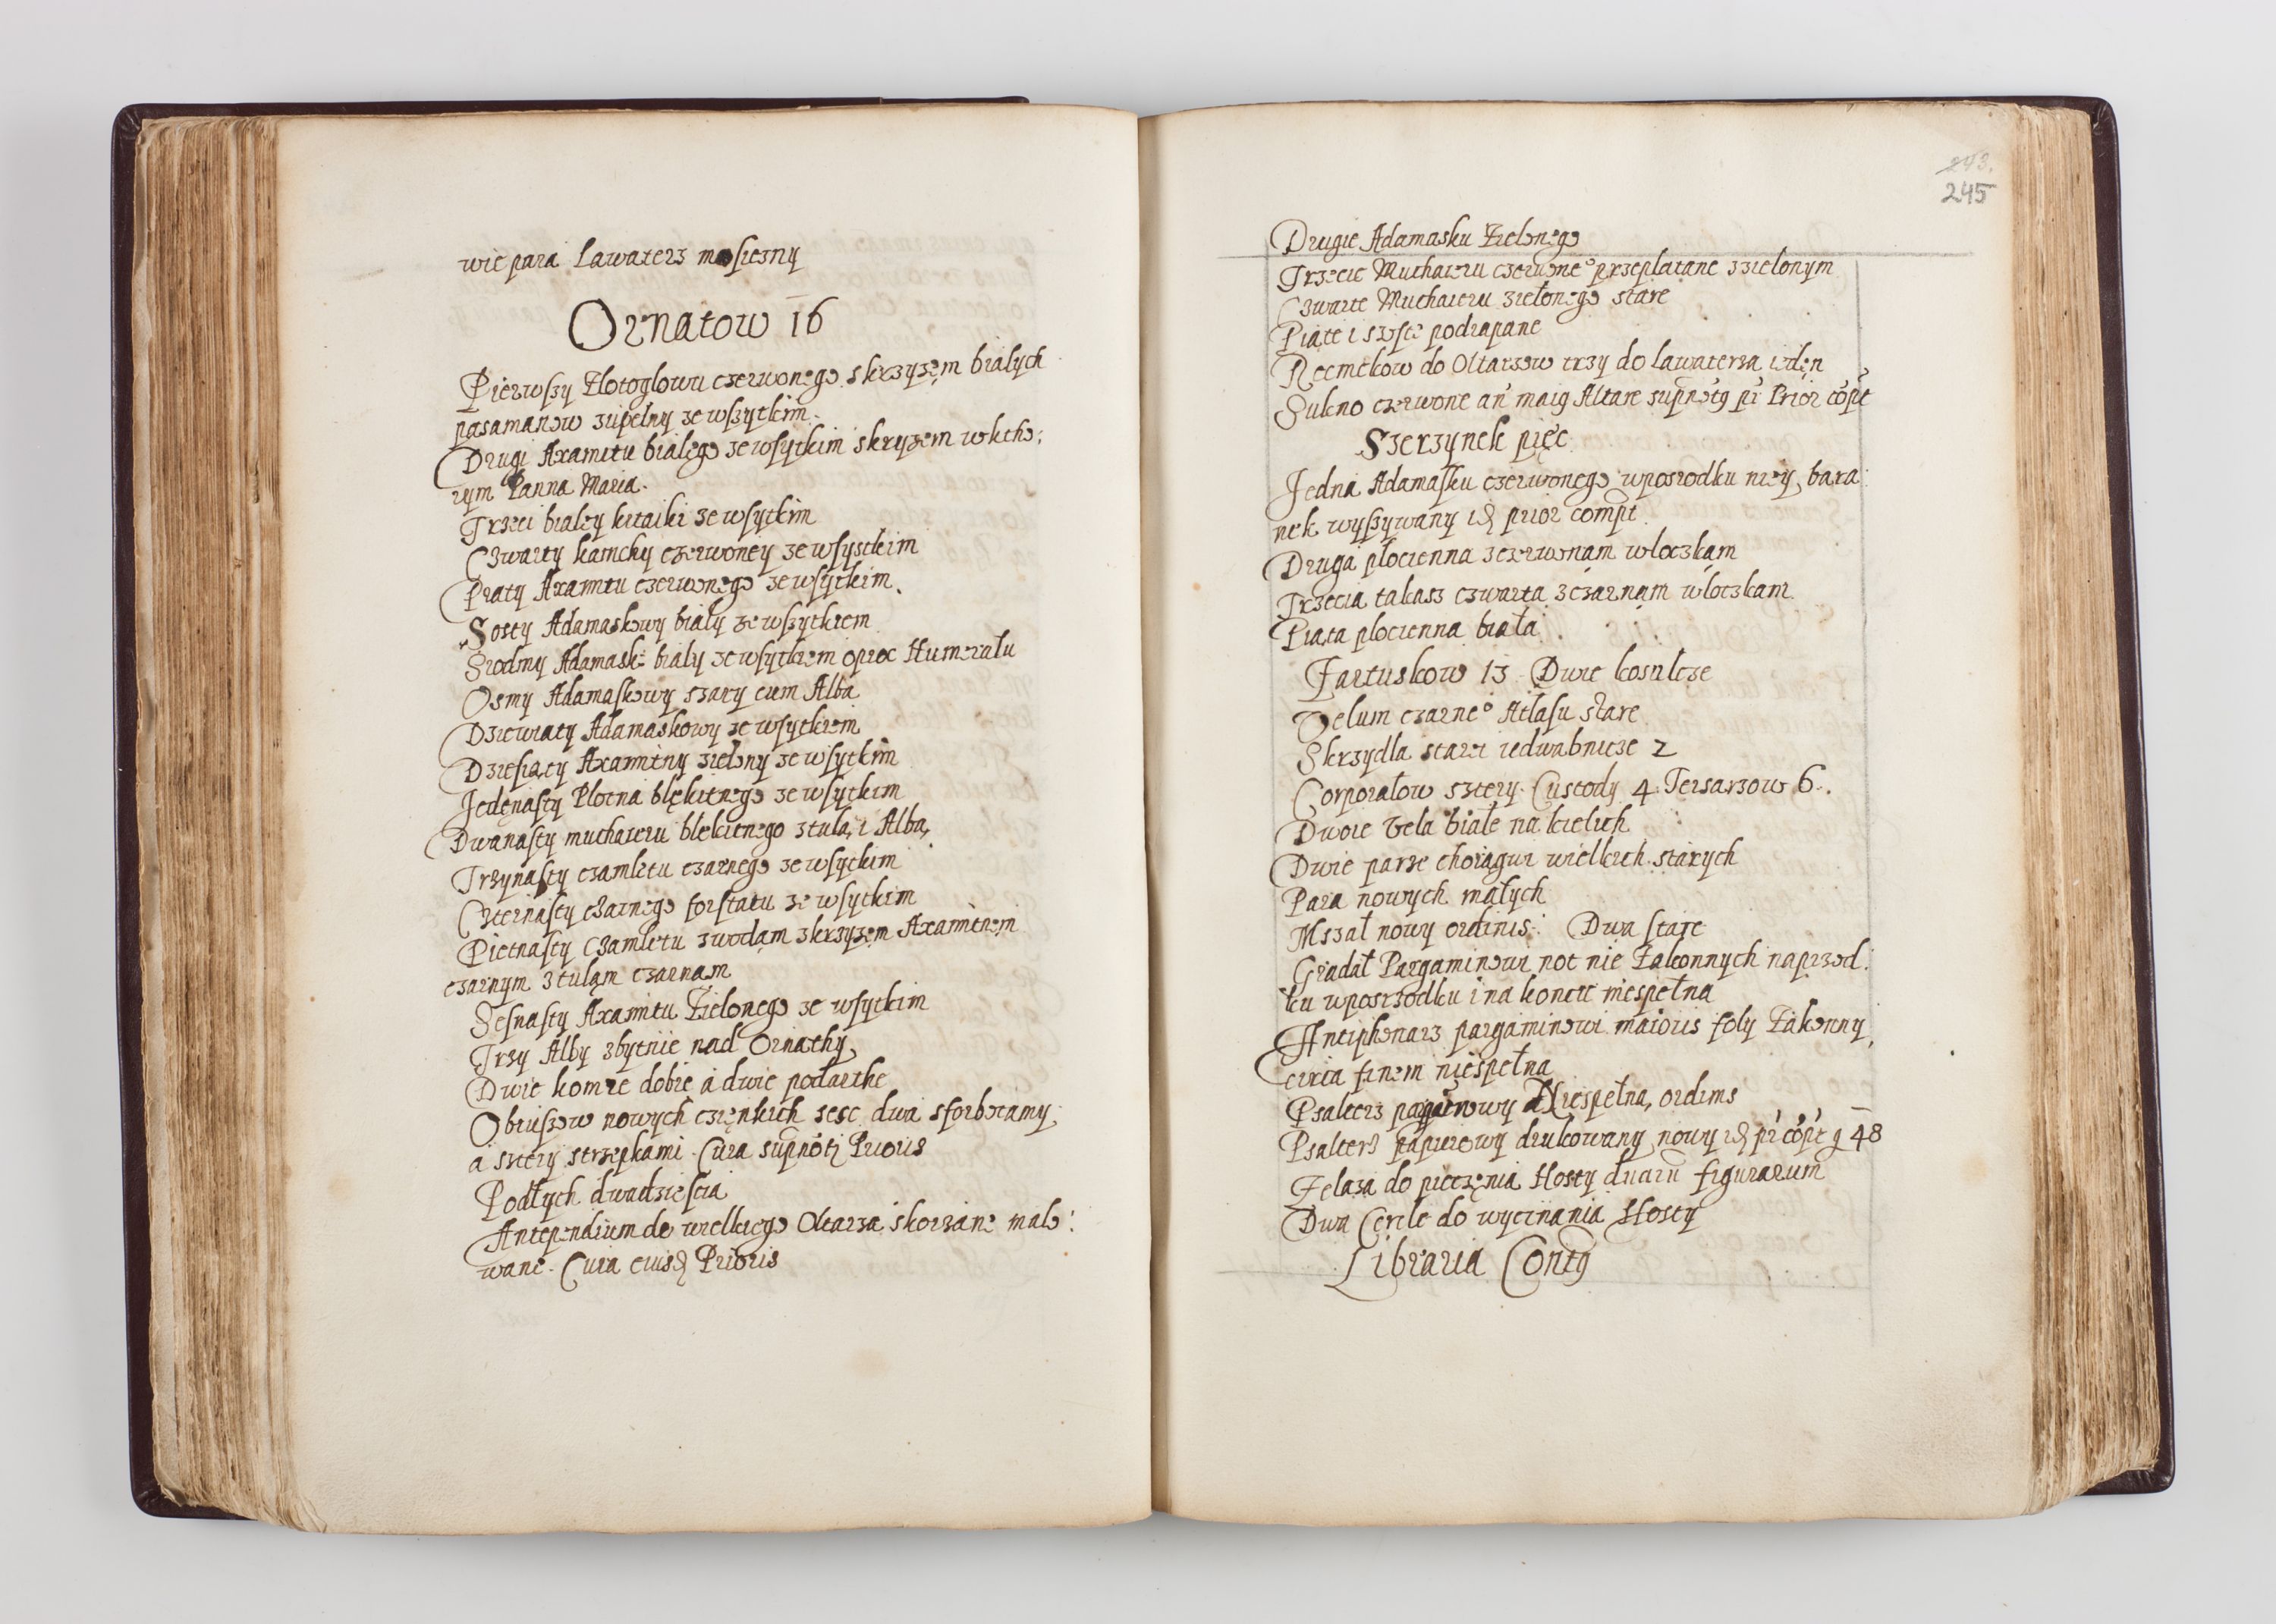 wie para Lawaterz mosiezny
Ornatow 16
Pierwszy Zlotoglowu czerwonego skrzyzem bialych
pasamanow zupelny ze wszytkim.
Drugi Axamitu bialego ze wsytkim skryzem wktho:
rym Panna Maria.
Trzeci bialey kitaiki ze wsytkim
Czwarty kamchy czerwoney ze wsystkim
Piaty Axamitu czerwonego ze wsytkim.
Sosty Adamaskowy bialy ze wszytkiem
Siodmy Adamask: bialy ze wsytkiem oproc Humerału
Osmy Adamaskowy szary cum Alba
Dziewiaty Adamaskowy ze wsytkiem
Dziesiąty Axamitny zielony ze wsytkim
Jedęnasty Plotna blękitnego ze wsytkim
Dwanasty muchaieru blekitnego ztulą i Albą
Trzynasty czamletu czarnego ze wsytkim
Czternasty czarnego forstatu ze wsytkim
Pietnasty Czamletu zwodąm zkrzyzem Axamitnem
czarnym ztuląm czarnąm
Sesnasty Axamitu Zielonego ze wsytkim
Trzy Alby zbytnie nad Ornathy
Dwie komze dobre a dwie podarthe
Obrusow nowych cziękich sesc dwa sforbotamy
a sztery strzepkami. Cura supnoti Prioris
Podłych dwadziescia
Antependium do wielkiego Oltarza skorzane malo:
wane. Cura eiusd Prioris
243.
245
Drugie Adamasku Zielonego
Trzecie Muchaieru czerwone° przeplatane zzielonym
Czwarte Muchaieru zielonego stare
Piąte i szoste podrapane
Recznikow do Oltarzow trzy do lawaterza ieden
Sukno czerwone an maig Altare supnotg pr Prior copt
Szerzynek pięc
Jedna Adamasku czerwonego wposrodku niey bara:
nek wyszywany id prior compt
Druga plocienna zczerwonąm wloczkąm
Trzecia takasz czwarta zczarnąm wloczkam
Piąta plocienna biała
Fartuskow 13 Dwie kosulcze
Velum czarne° Atlasu stare
Skrzydla stare iedwabnicze 2
Corporałow sztery. Custody 4. Tersarzow 6.
Dwoie Vela białe na kielich
Dwie parze choragwi wielkich starych
Para nowych małych
Mszał nowy ordinis: Dwa stare
Gradał Pargaminowi not nie Zakonnych naprzod:
ku wposrzodku i na koncu niespełna
Antiphonarz pargaminowi maioris foly Zakonny
circa finem niespełna
Psalterz Niespełna, ordinis
Psalterz papierowy drukowany nowy id pr copt g 48
Zelaza do pieczęnia Hosty duaru figurarum
Dwa Cercle do wycinania Hosty
Libraria Contg